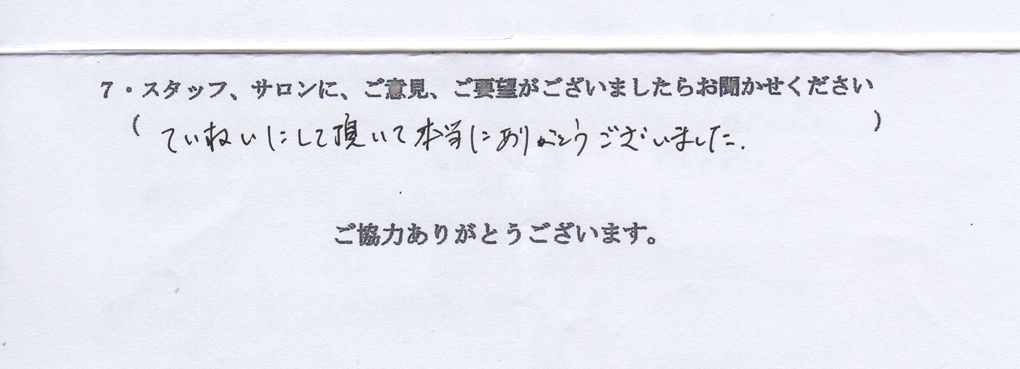 7・スタッフ、サロンに、ご意見、ご要望がございましたらお聞かせください
( ていねいにして頂いて本当にありがとうございました. )
ご協力ありがとうございます。